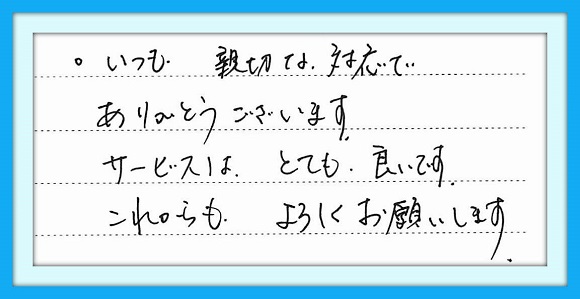 。いつも 親切な、対応で
ありがとうございます。
サービスは、とても、良いです。
これからも、よろしくお願いします。